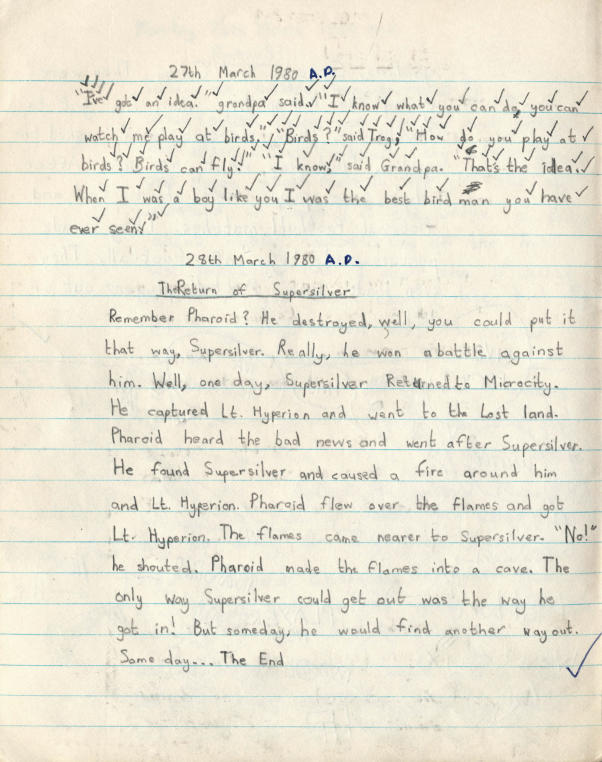 27th March 1980 A.D.
"I've got an idea." grandpa said. "I know what you can do, you can
watch me play at birds." "Birds?" said Trog, "How do you play at
birds? Birds can fly!" "I know," said Grandpa. "That's the idea.
When I was a boy like you I was the best bird man you have
ever seen!"
28th March 1980 A.D.
The Return of Supersilver
Remember Pharoid? He destroyed, well, you could put it
that way, Supersilver. Really, he won a battle against
him. Well, one day, Supersilver Returned to Microcity.
He captured Lt. Hyperion and went to the Lost land.
Pharoid heard the bad news and went after Supersilver.
He found Supersilver and caused a fire around him
and Lt. Hyperion. Pharoid flew over the flames and got
Lt. Hyperion. The flames came nearer to Supersilver. "No!"
he shouted. Pharoid made the flames into a cave. The
only way Supersilver could get out was the way he
got in! But someday, he would find another way out.
Some day... The End